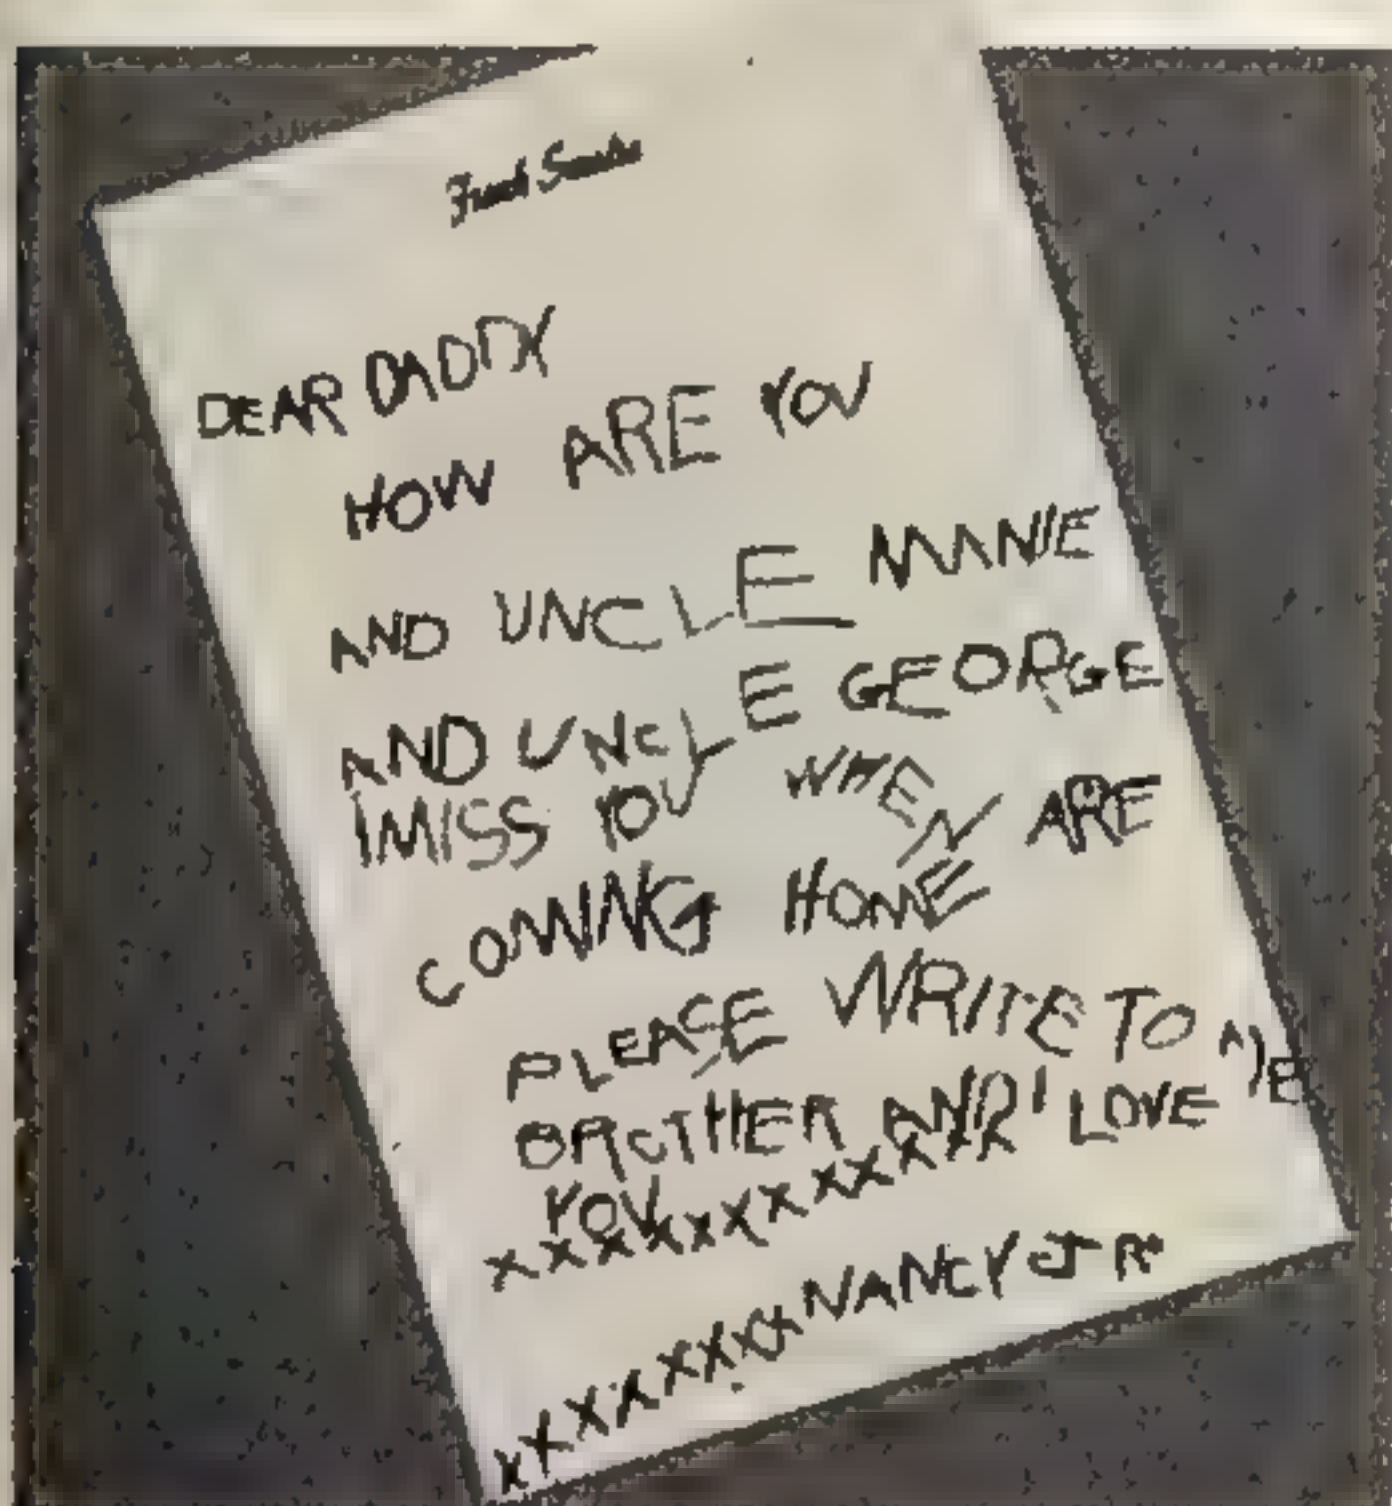 Frank Sinatra
DEAR DADDY
HOW ARE YOU
AND UNCLE MANIE
AND UNCLE GEORGE
I MISS YOU WHEN ARE
COMING HOME
PLEASE WRITE TO ME
BROTHER AND I LOVE
YOU
XXXXXXXXXXXX
XXXXXXXXX NANCY JR.